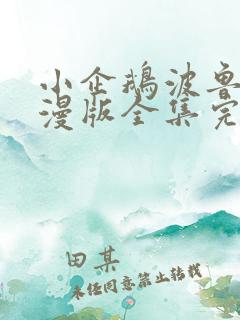 小企鹅波鲁
漫版全集完
田某
未经同意禁止转载